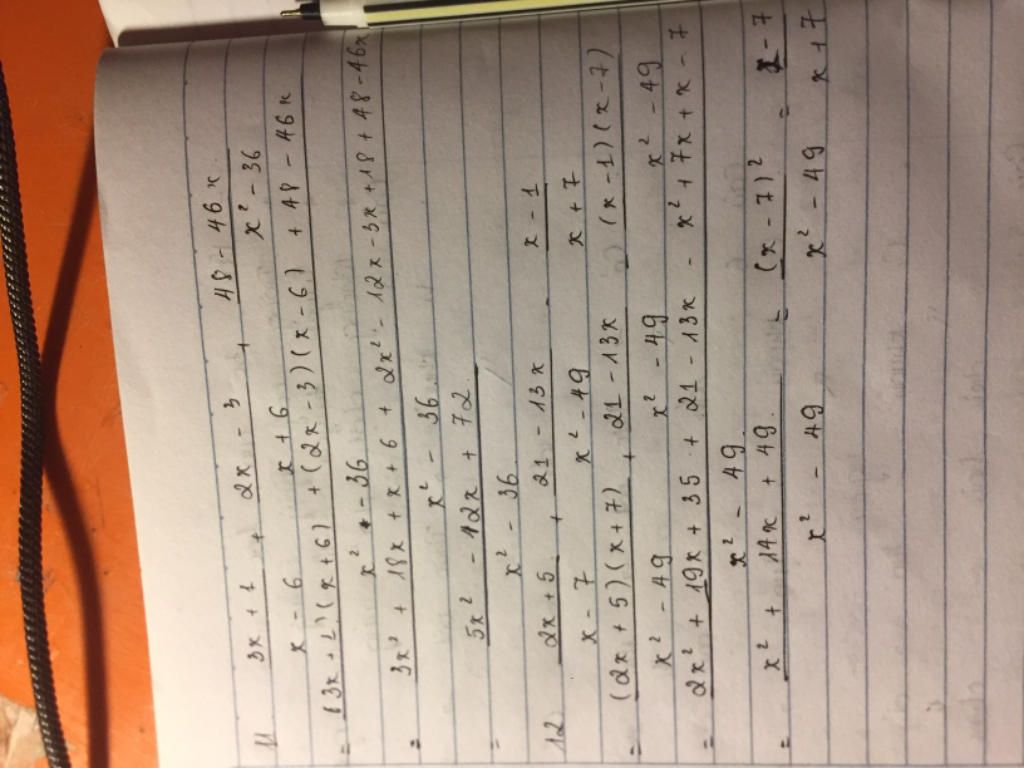 11 (3x + 1)/(x - 6) + (2x - 3)/(x + 6) + (48 - 46x)/(x² - 36)
= ((3x + 1)(x + 6) + (2x - 3)(x - 6) + 48 - 46x)/(x² - 36)
= (3x² + 18x + x + 6 + 2x² - 12x - 3x + 18 + 48 - 46x)/(x² - 36)
= (5x² - 42x + 72)/(x² - 36)
12 (2x + 5)/(x - 7) + (21 - 13x)/(x² - 49) - (x - 1)/(x + 7)
= ((2x + 5)(x + 7))/(x² - 49) + (21 - 13x)/(x² - 49) - ((x - 1)(x - 7))/(x² - 49)
= (2x² + 19x + 35 + 21 - 13x - x² + 7x + x - 7)/(x² - 49)
= (x² + 14x + 49)/(x² - 49) = (x - 7)²/(x² - 49) = (x - 7)/(x + 7)